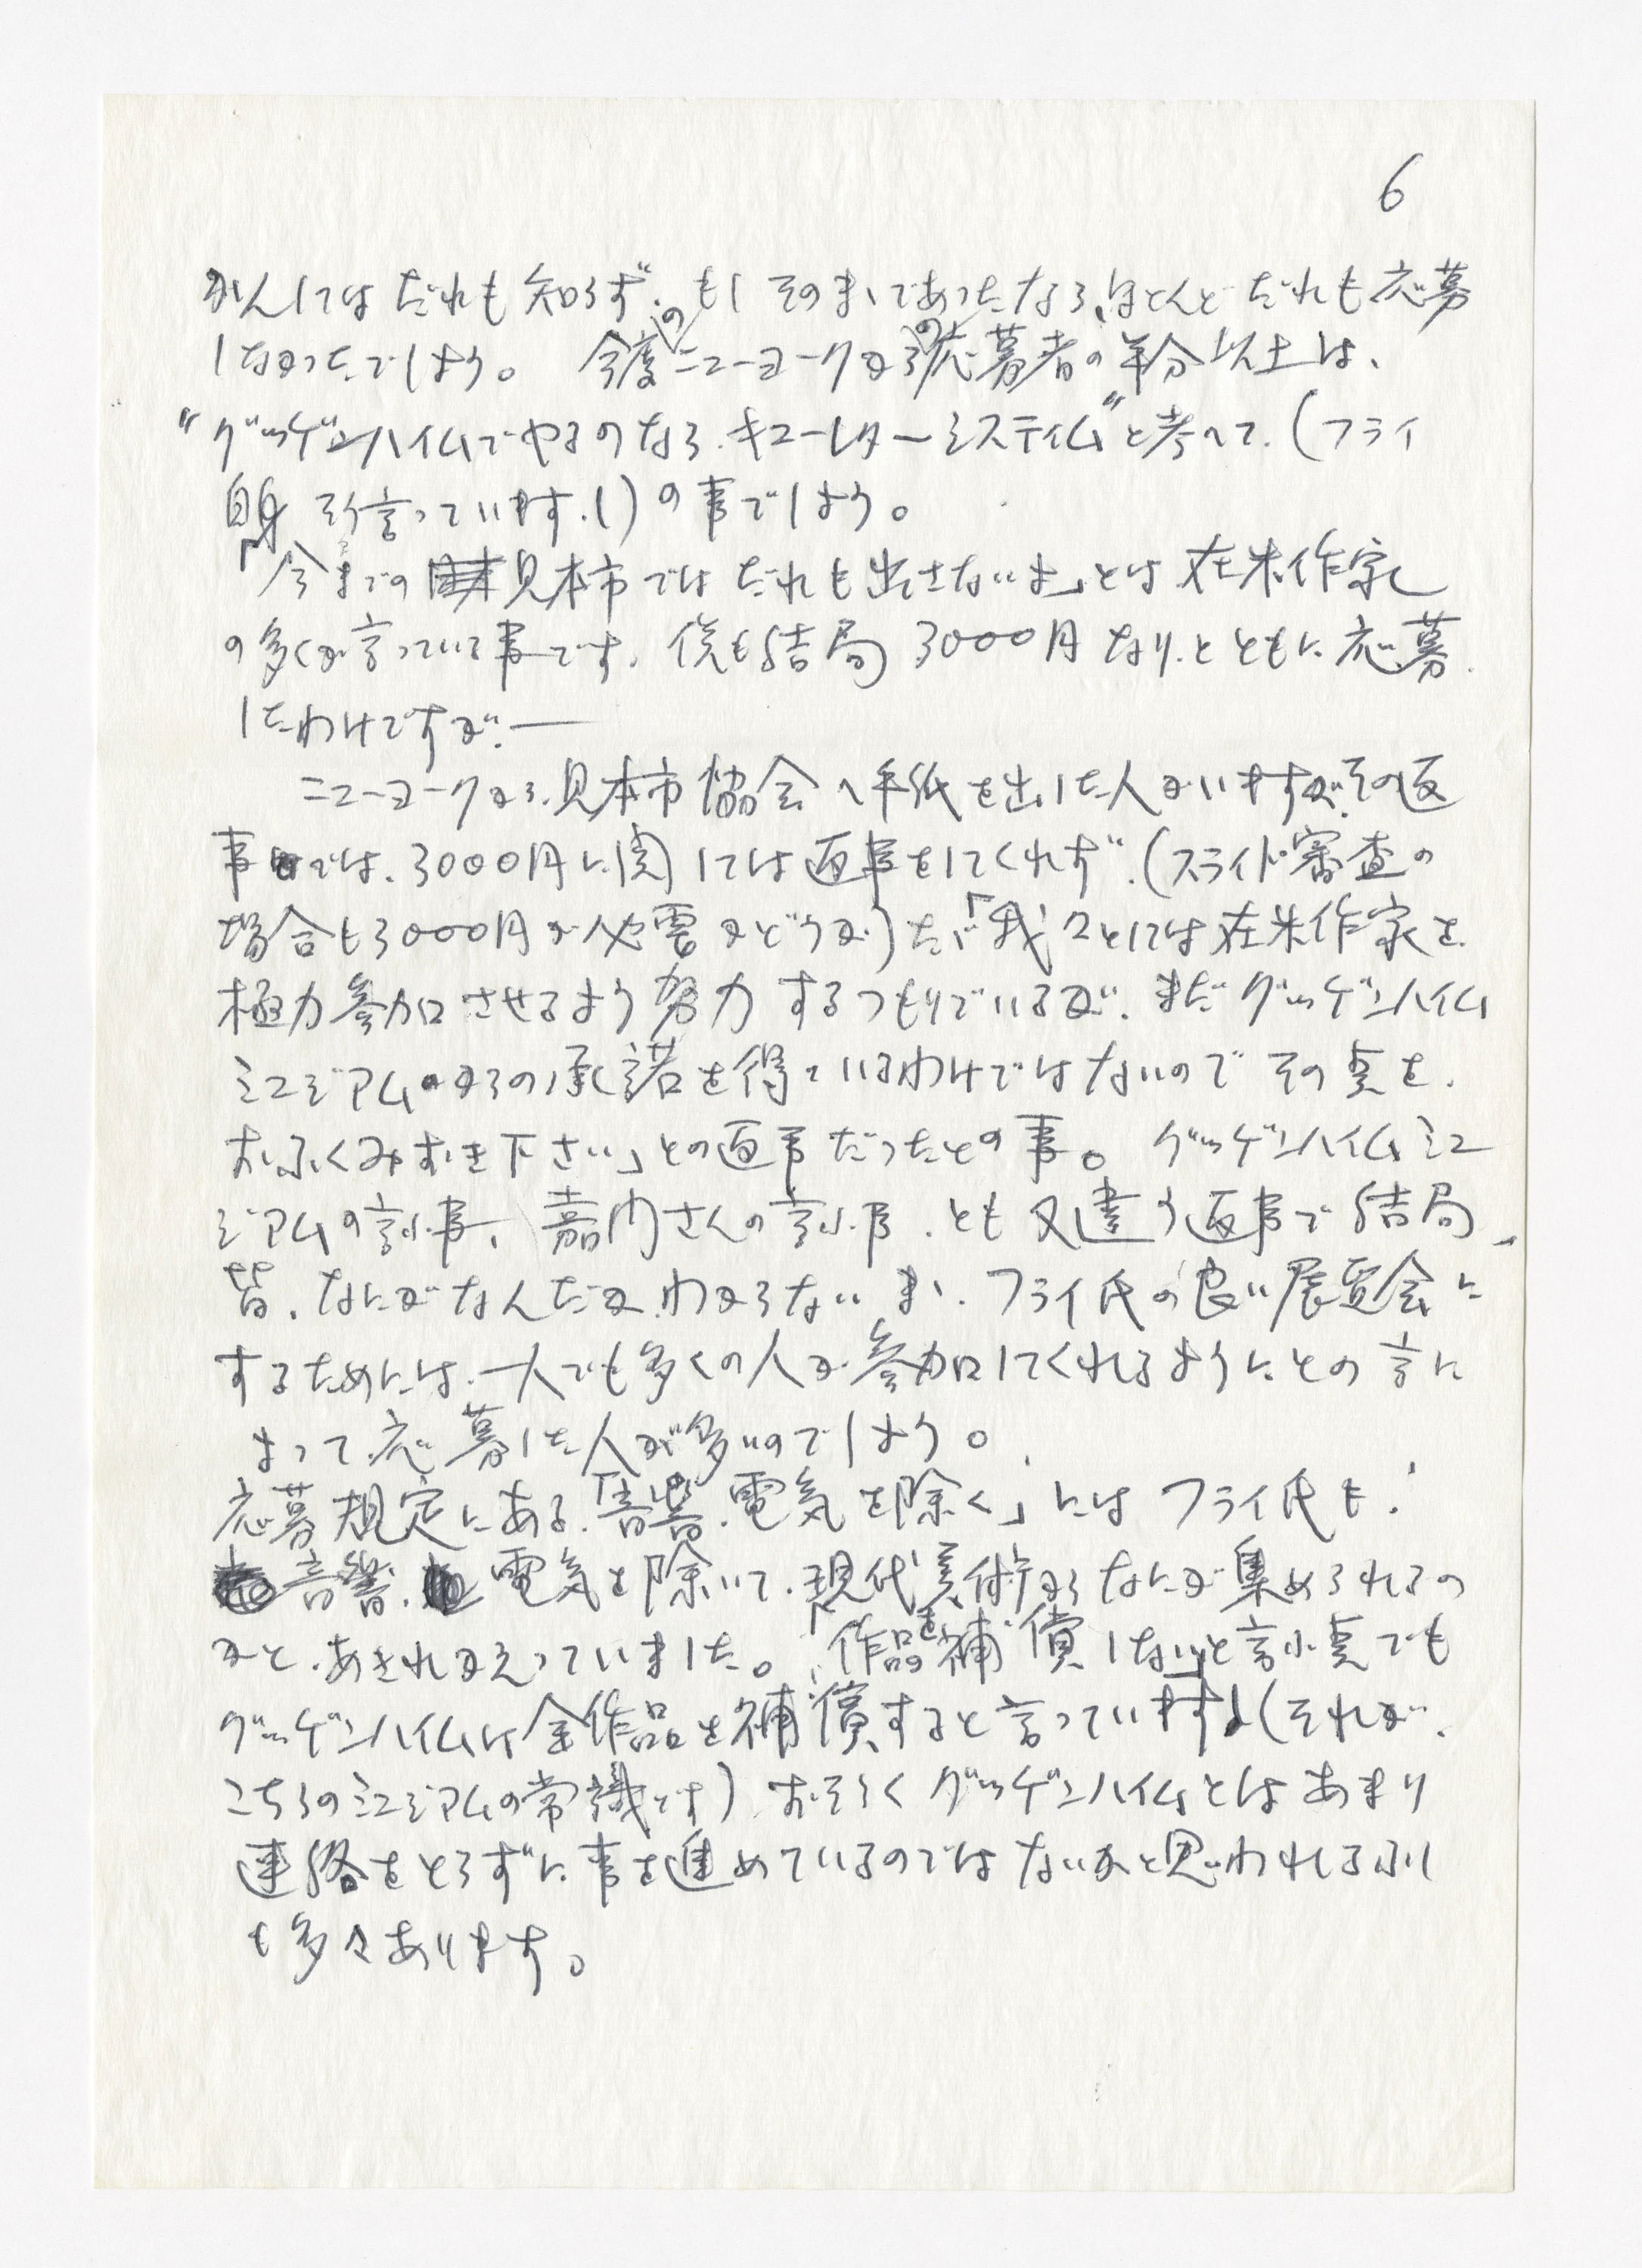 6
かんしてはだれも知らず、もしそのまゝであったなら、ほとんどだれも応募
しなかったでしょう。 今度のニューヨークからの応募者の半分以上は、
"グッゲンハイムでやるのなら、キューレターシスティム"と考へて、(フライ
自身そう言っています。)の事でしょう。
「今までの見本市ではだれも出さないよ」とは在米作家
の多くが言っている事です。僕も結局3000円なり、とともに応募
したわけですが、—
ニューヨークから、見本市協会へ手紙を出した人がいますが、その返
事では、3000円に関しては返事をしてくれず、(スライド審査の
場合も3000円が必要かどうか)ただ「我々としては在米作家を
極力参加させるよう努力するつもりでいるが、まだグッゲンハイム
ミュジアムからの承諾を得ているわけではないのでその点を、
おふくみおき下さい」との返事だったとの事。 グッゲンハイムミュ
ジアムの言ふ事、嘉門さんの言ふ事、とも又違う返事で結局、
皆、なにがなんだかわからないまゝ、フライ氏の良い展覧会に
するためには、一人でも多くの人が参加してくれるようにとの言に
よって応募した人が多いのでしょう。
応募規定にある「音響、電気を除く」にはフライ氏も、
音響、電気を除いて、現代美術からなにが集められるの
かと、あきれかえっていました。「作品を補償しない」と言ふ点でも
グッゲンハイムは全作品を補償すると言っています。(それが、
こちらのミュジアムの常識です) おそらくグッゲンハイムとはあまり
連絡をとらずに事を進めているのではないかと思われるふし
も多々あります。